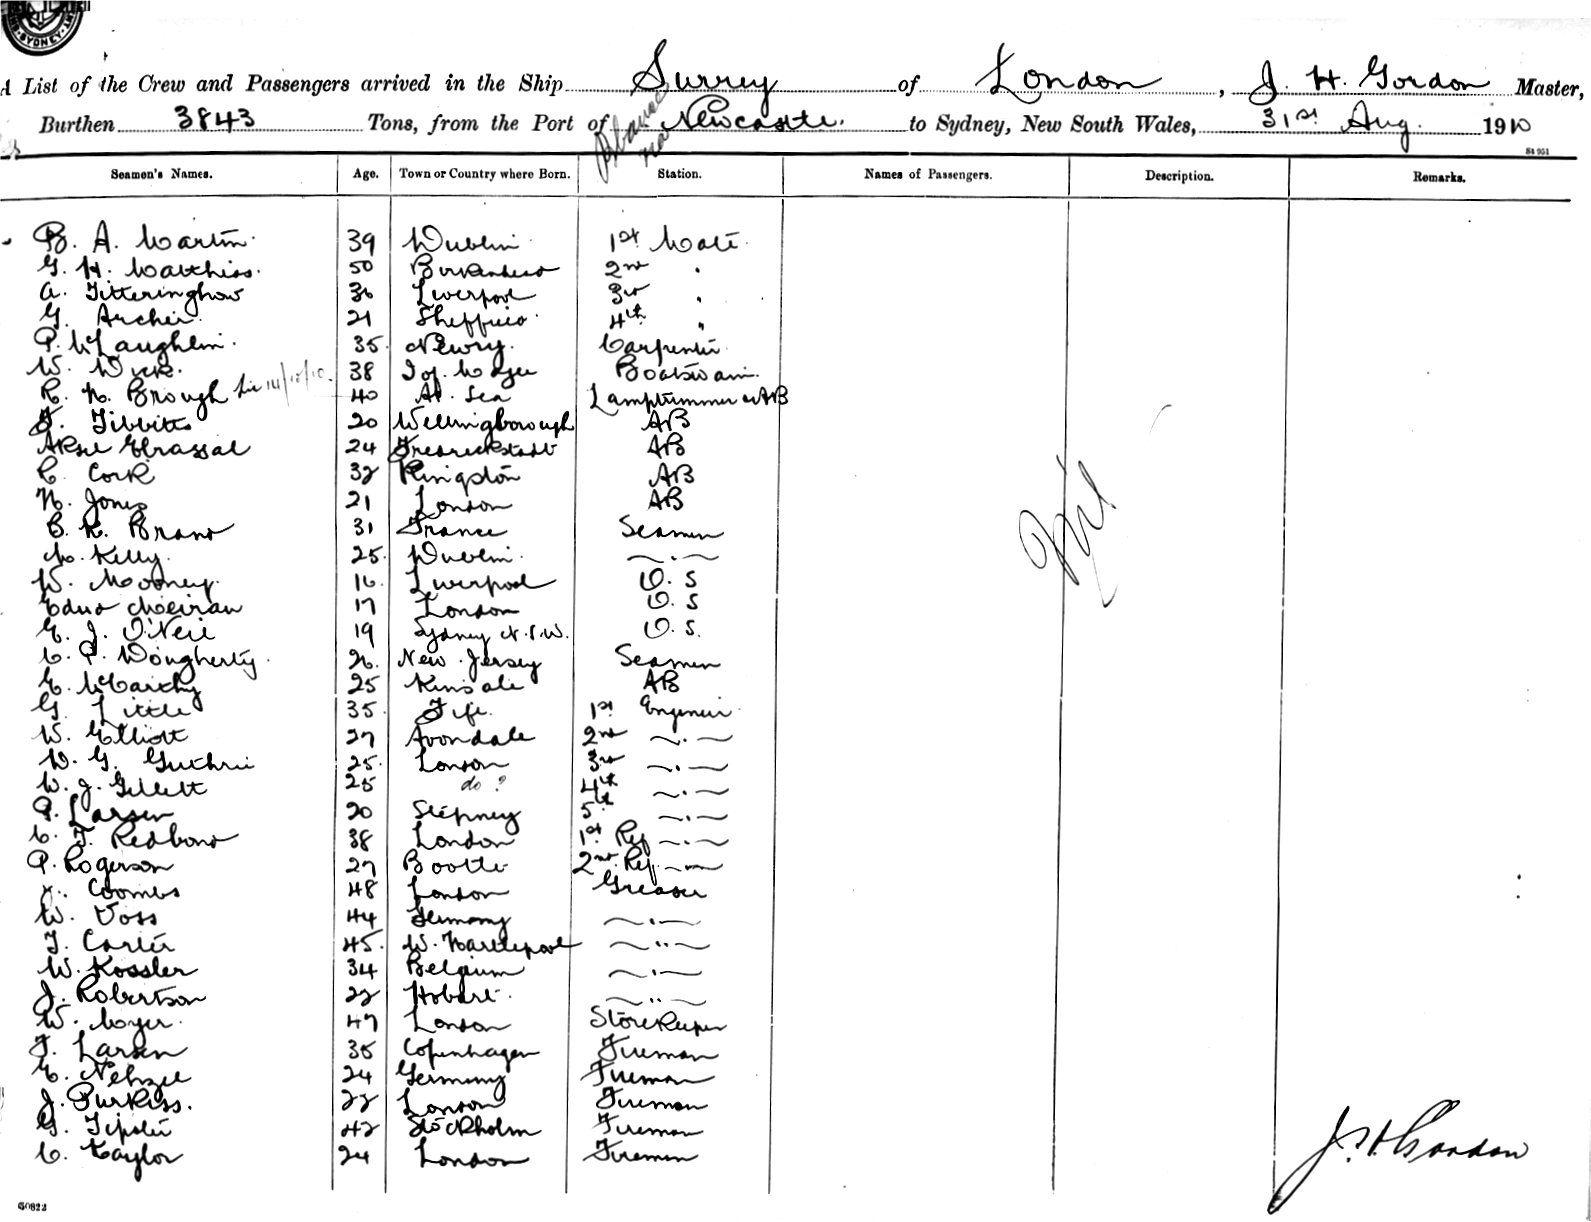 SYDNEY
A List of the Crew and Passengers arrived in the Ship Surrey of London, J. H. Gordon Master,
Burthen 3843 Tons, from the Port of Newcastle. to Sydney, New South Wales, 31st Aug. 1910
Seamen's Names. Age. Town or Country where Born. Station. Names of Passengers. Description. Remarks.
B. A. Martin 39 Dublin 1st Mate
G. H. Matthias 50 Birkenhead 2nd "
A. Titterington 36 Liverpool 3rd "
G. Archer 21 Sheffield 4th "
P. McLaughlin 35 Newry Carpenter
W. Wick 38 Boatswain
R. N. Brough 14/10/10 40 At Sea Lamptrimmer & AB
F. Tibbitts 20 Wellingborough AB
Aksel 24 Fredrickstadt AB
C. Cork 32 Kingston AB
N. Jones 21 London AB
B. R. 31 France Seaman
M. Kelly 25 Dublin "
W. Mooney 16 Liverpool O.S
Edwd 17 London O.S
E. J. O'Neil 19 Sydney N.S.W. O.S.
C. P. Dougherty 26 New Jersey Seaman
E. McCarthy 25 Kinsale AB
G. Little 35 Fife 1st Engineer
W. Elliott 27 Avondale 2nd "
W. G. Guthrie 25 London 3rd "
W. J. Gillett 25 do ? 4th "
P. Larsen 20 Stepney 5th "
C. F. Redbond 38 London 1st Ref "
P. Rogerson 27 Bootle 2nd Ref "
Coombs 48 London Greaser
W. Voss 44 Germany "
T. Carter 45 W. Hartlepool "
W. Kossler 34 Belgium "
J. Robertson 22 Hobart "
W. Moyer 47 London Storekeeper
F. Larsen 35 Copenhagen Fireman
E. 24 Germany Fireman
J. Purkiss. 22 London Fireman
G. 42 Stockholm Fireman
C. Taylor 24 London Fireman
Nil
J. H. Gordon